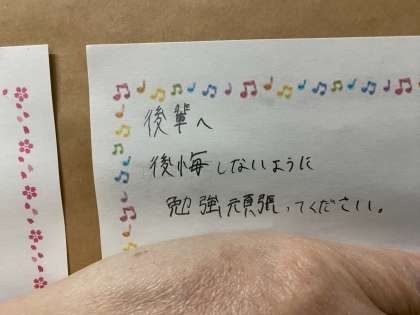 後輩へ
後悔しないように
勉強頑張ってください。